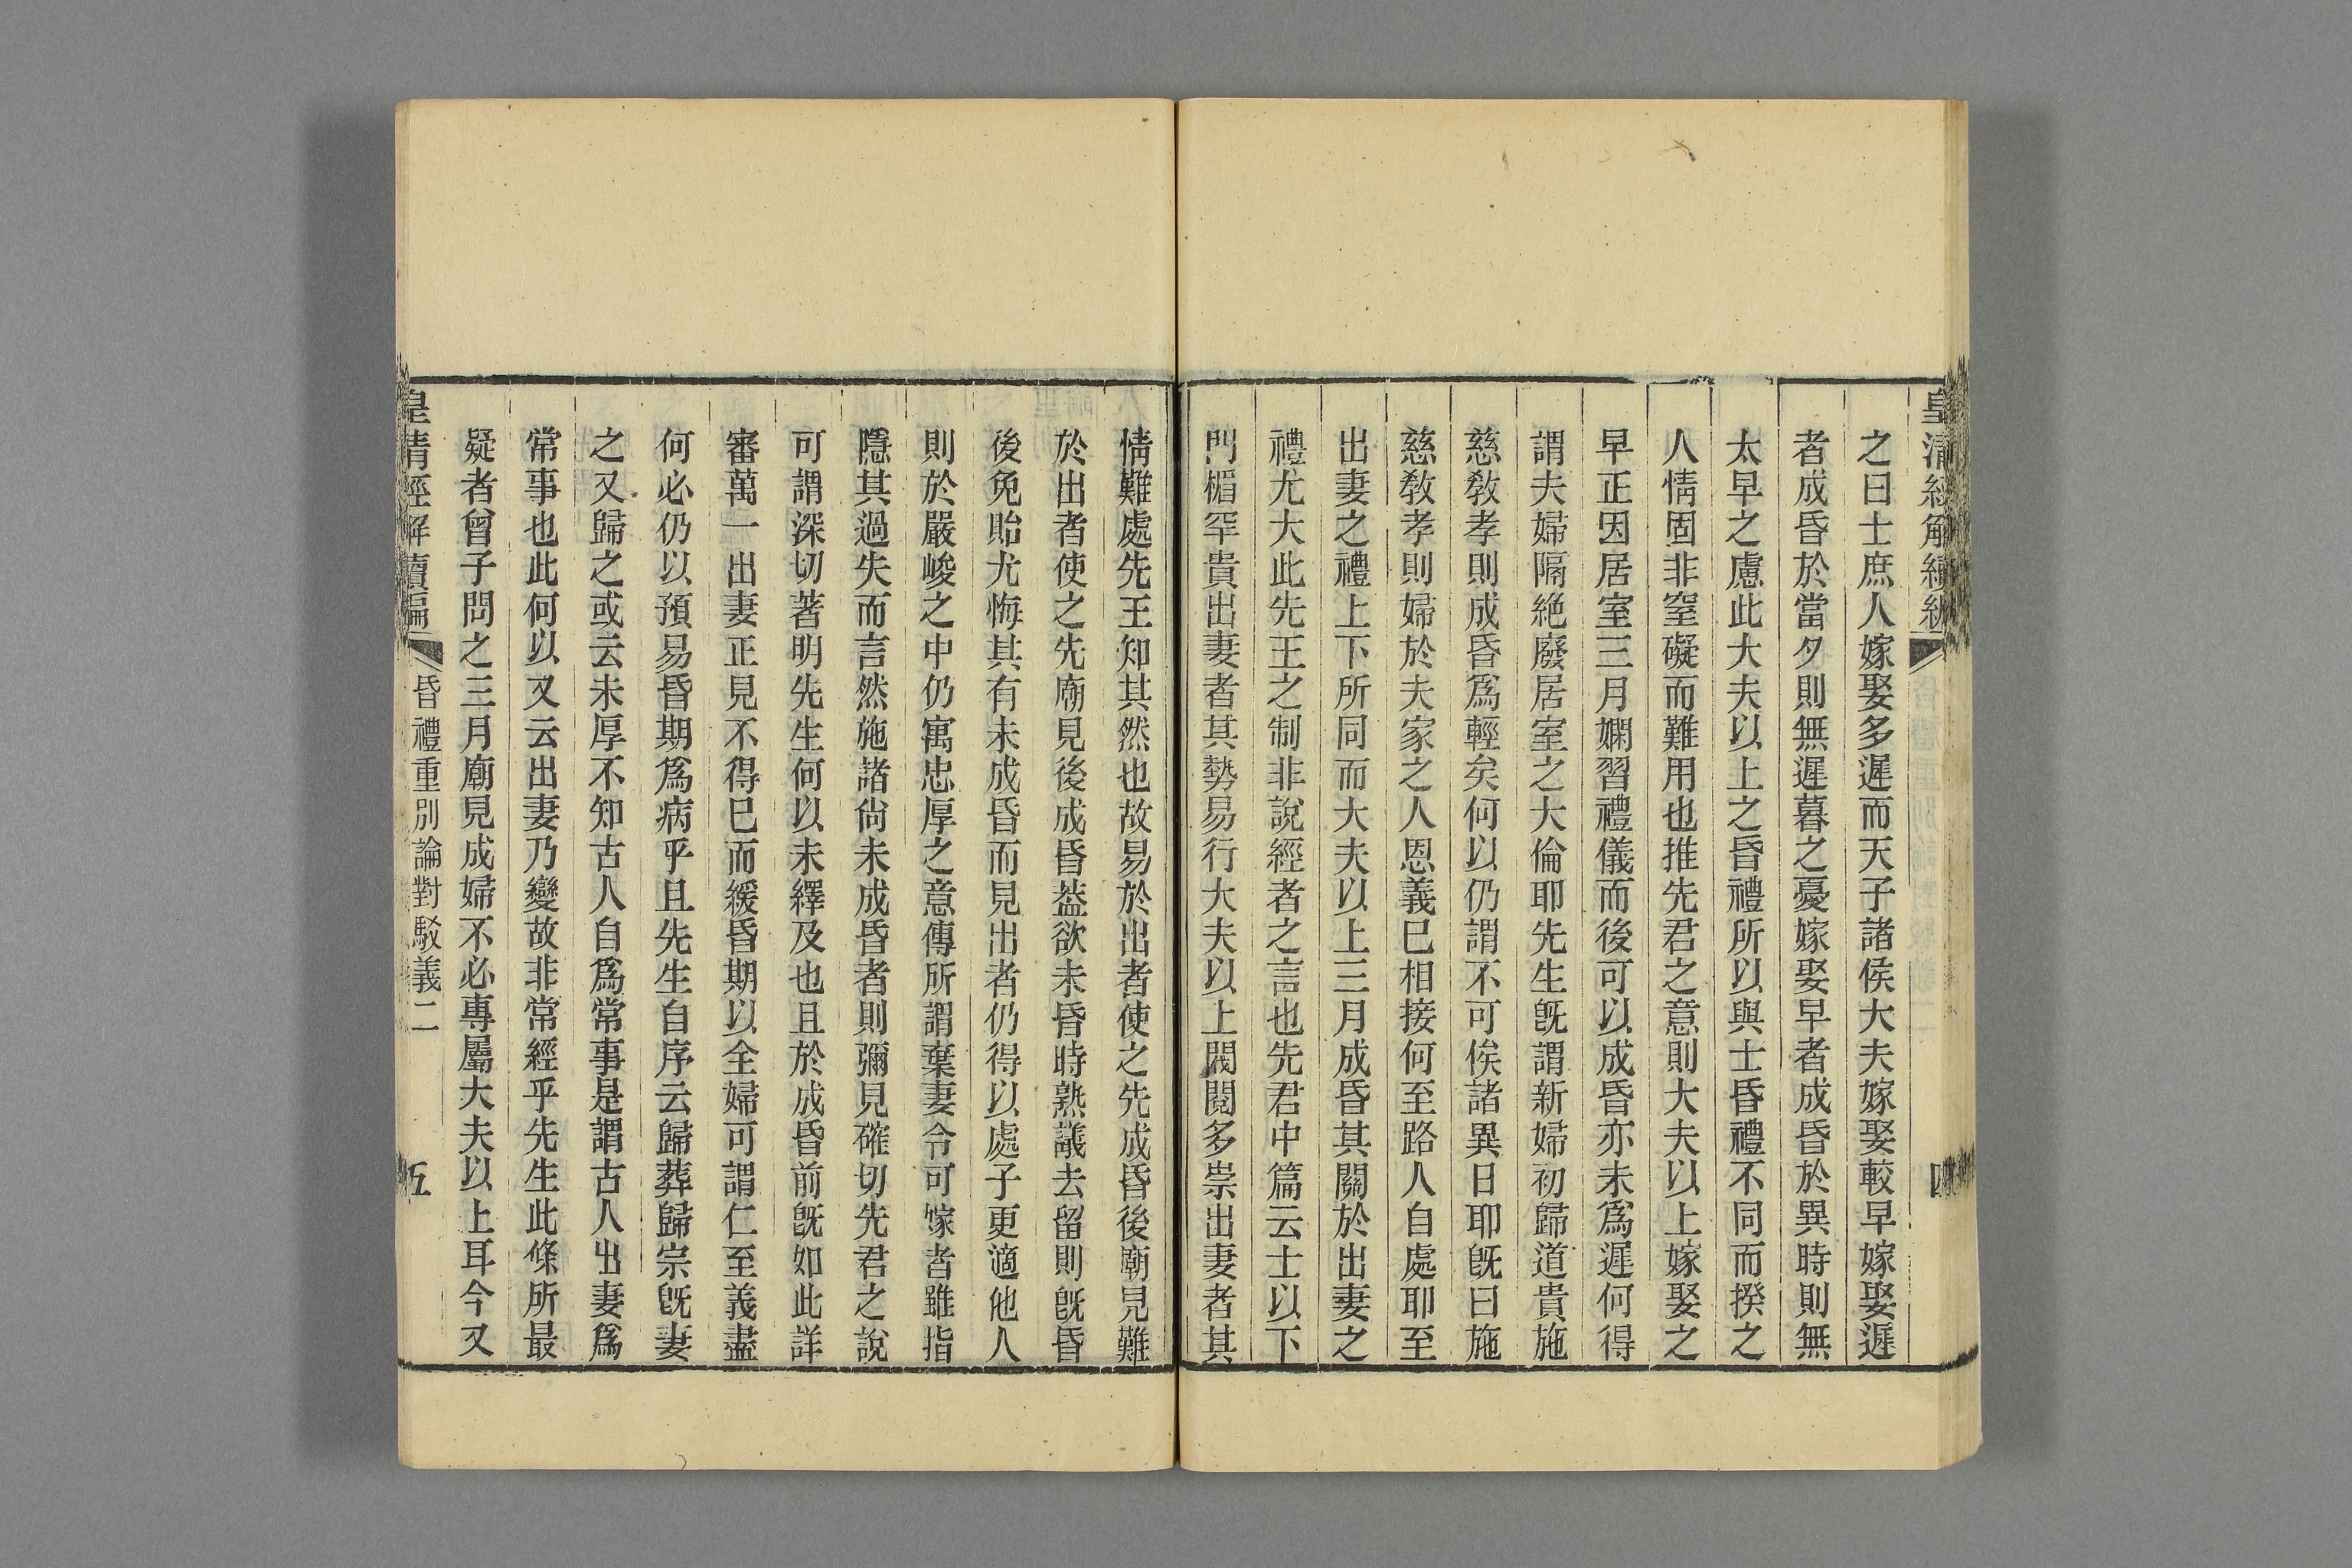 皇清經解續編
四
之曰士庶人嫁娶多遲而天子諸侯大夫嫁娶較早嫁娶遲
者成昏於當夕則無遲暮之憂嫁娶早者成昏於異時則無
太早之慮此大夫以上之昏禮所以與士昏禮不同而揆之
人情固非窒礙而難用也推先君之意則大夫以上嫁娶之
早正因居室三月嫻習禮儀而後可以成昏亦未爲遲何得
謂夫婦隔絶廢居室之大倫耶先生旣謂新婦初歸道貴施
慈敎孝則成昏爲輕矣何以仍謂不可俟諸異日耶旣曰施
慈敎孝則婦於夫家之人恩義已相接何至路人自處耶至
出妻之禮上下所同而大夫以上三月成昏其關於出妻之
禮尤大此先王之制非說經者之言也先君中篇云士以下
門楣罕貴出妻者其勢易行大夫以上閥閱多崇出妻者其
情難處先王知其然也故易於出者使之先成昏後廟見難
於出者使之先廟見後成昏葢欲未昏時熟議去留則旣昏
後免貽尤悔其有未成昏而見出者仍得以處子更適他人
則於嚴峻之中仍寓忠厚之意傳所謂棄妻令可嫁者雖指
隱其過失而言然施諸尙未成昏者則彌見確切先君之說
可謂深切著明先生何以未繹及也且於成昏前旣如此詳
審萬一出妻正見不得已而緩昏期以全婦可謂仁至義盡
何必仍以預易昏期爲病乎且先生自序云歸葬歸宗旣妻
之又歸之或云未厚不知古人自爲常事是謂古人出妻爲
常事也此何以又云出妻乃變故非常經乎先生此條所最
疑者曾子問之三月廟見成婦不必專屬大夫以上耳今又
皇清經解續編
昏禮重別論對駁義二
五